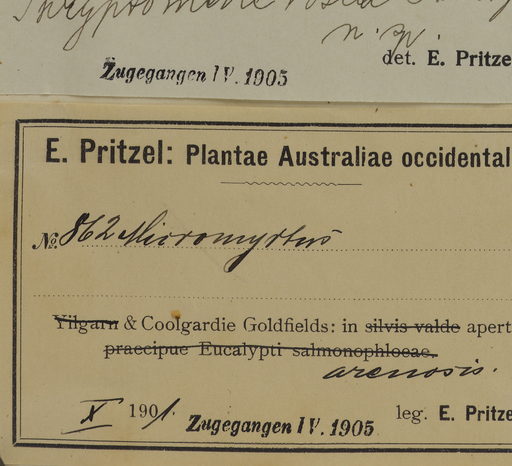 Cryptomene rosea
n. sp.
det. E. Pritze
Zugegangen IV. 1905
E. Pritzel: Plantae Australiae occidental
№ 862 Micromyrtus
Yilgarn & Coolgardie Goldfields: in silvis valde apert
praecipue Eucalypti salmonophloeae.
arenosis.
X 1901.
Zugegangen IV. 1905
leg. E. Pritze